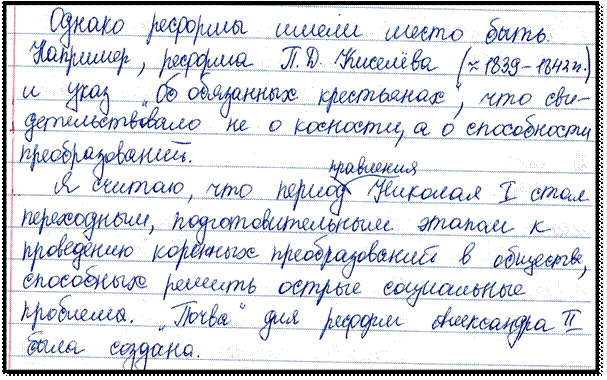 Однако реформы имели место быть.
Например, реформа П.Д. Киселёва (≈1839-1842гг.)
и указ "об обязанных крестьянах", что сви-
детельствовало не о косности, а о способности
преобразований.
правления
Я считаю, что период Николая I стал
переходным, подготовительным этапом к
проведению коренных преобразований в обществе,
способных решить острые социальные
проблемы. "Почва" для реформ Александра II
была создана.